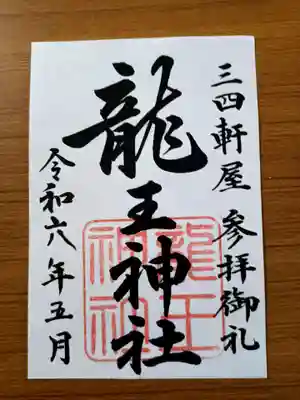 三四軒屋 参拝御礼
龍王神社
令和六年五月
龍王神社